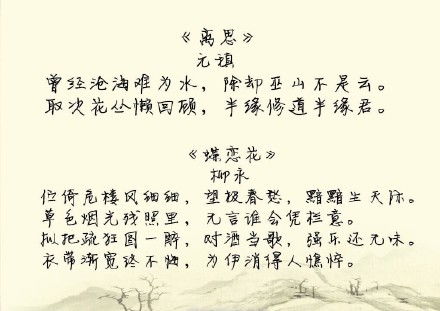 《离思》
元稹
曾经沧海难为水，除却巫山不是云。
取次花丛懒回顾，半缘修道半缘君。
《蝶恋花》
柳永
伫倚危楼风细细，望极春愁，黯黯生天际。
草色烟光残照里，无言谁会凭栏意。
拟把疏狂图一醉，对酒当歌，强乐还无味。
衣带渐宽终不悔，为伊消得人憔悴。